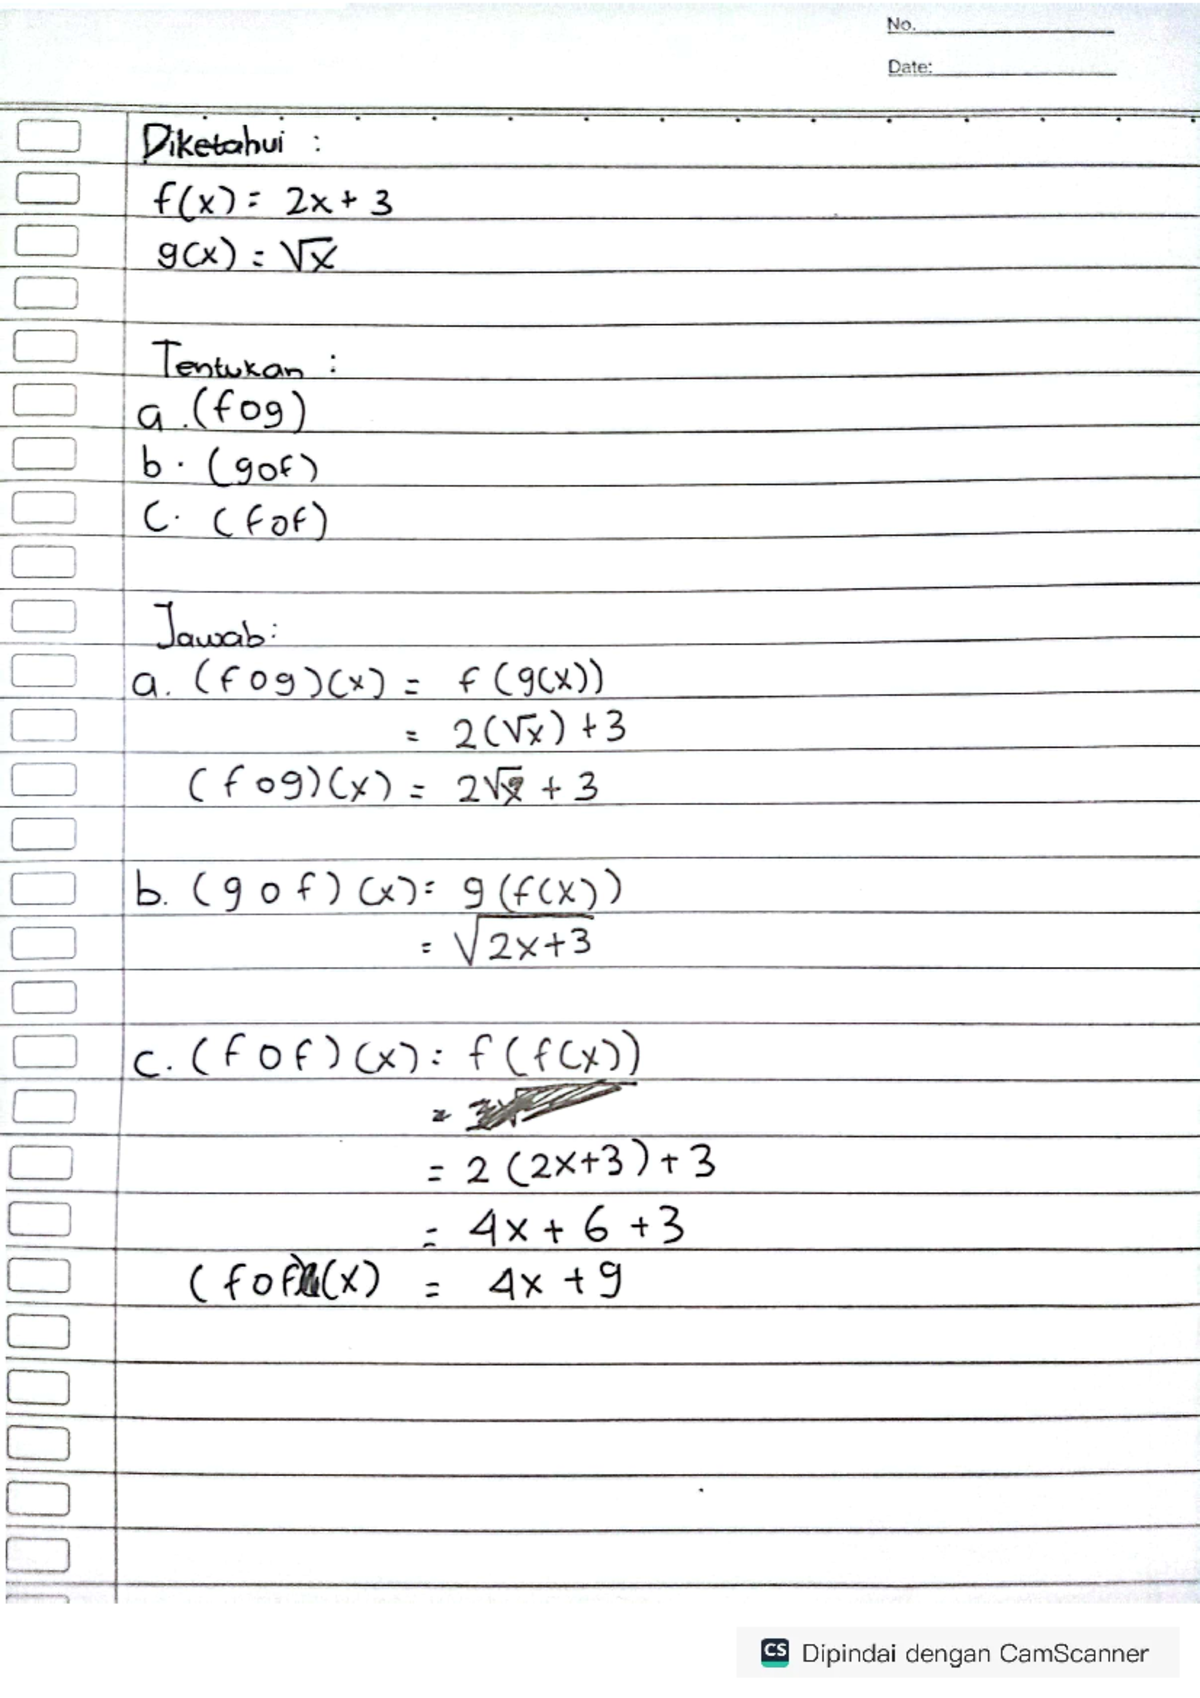 No.
Date:
Diketahui :
f(x) = 2x + 3
g(x) = √x
Tentukan :
a. (fog)
b. (gof)
c. (fof)
Jawab:
a. (fog)(x) = f(g(x))
= 2(√x) + 3
(fog)(x) = 2√x + 3
b. (gof)(x) = g(f(x))
= √2x+3
c. (fof)(x) = f(f(x))
=
= 2(2x+3) + 3
= 4x + 6 + 3
(fof)(x) = 4x + 9
CS Dipindai dengan CamScanner